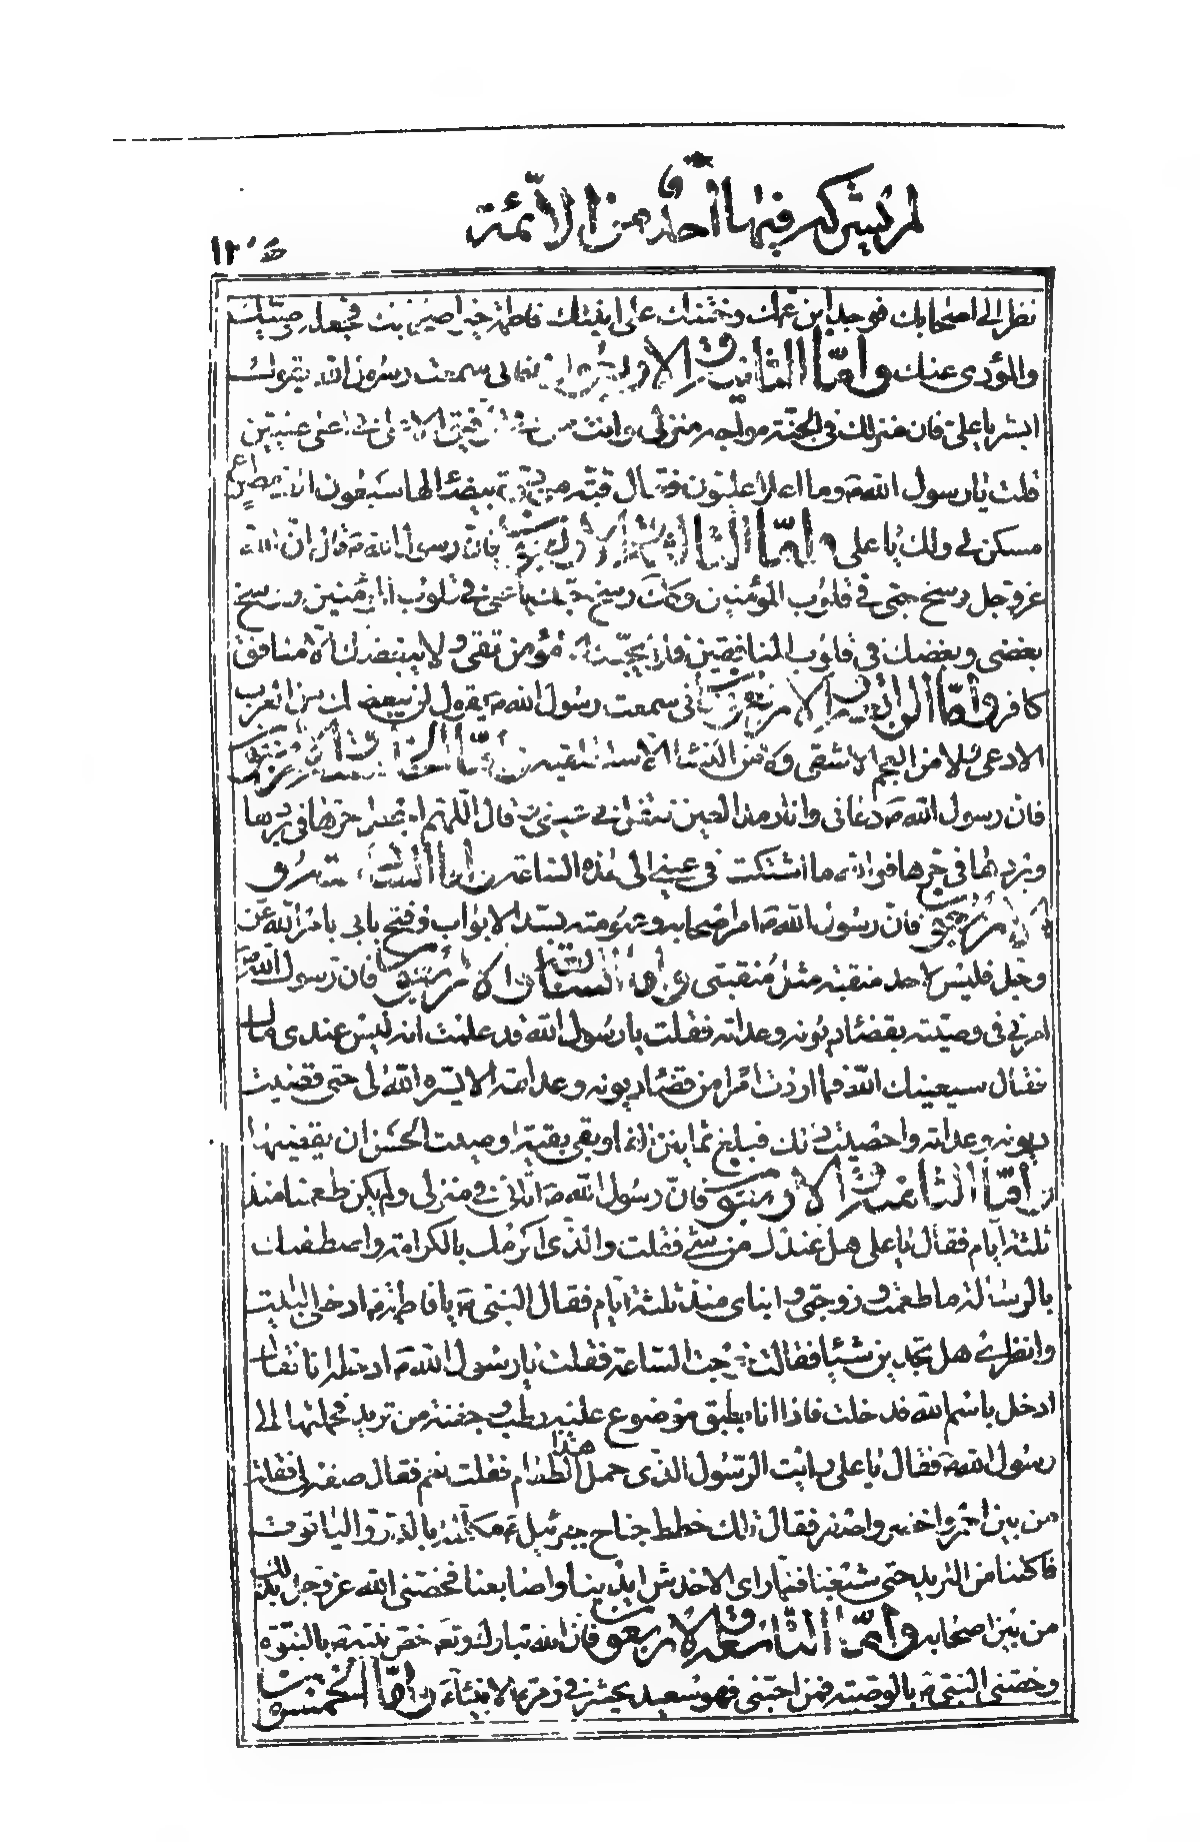 لم يشركه فيها احد من الائمة
ص ١٢٠
نظر الى اصحابك فوجد ابن عمك وختنك على ابنتك فاطمة خير اصحابك فجعله وصيّك
والمؤدى عنك وامّا الثانية والاربعون فانى سمعت رسول الله يقول
ابشر يا على فان منزلك فى الجنّة مواجه منزلى وانت معى فى الرفيق الاعلى فى اعلى عليّين
قلت يا رسول الله ص وما اعلا عليّون فقال قبّة من درّة بيضاء لها سبعون الف مصراع
مسكن لى ولك يا على وامّا الثالثة والاربعون فانّ رسول الله ص قال انّ الله
عزوجل رسخ حبّى فى قلوب المؤمنين وكذلك رسخ حبّك يا على فى قلوب المؤمنين ورسخ
بغضى وبغضك فى قلوب المنافقين فلا يحبّك الا مؤمن تقى ولا يبغضك الا منافق
كافر وامّا الرابعة والاربعون فانى سمعت رسول الله ص يقول لن يبغضك من العرب
الا دعى ولا من العجم الا شقى ولا من النساء الا سلقلقية وامّا الخامسة والاربعون
فان رسول الله ص دعانى وانا رمد العين فتفل فى عينى وقال اللهم اجعل حرّها فى بردها
وبردها فى حرّها فو الله ما اشتكت عينى الى هذه الساعة وامّا السادسة و
الاربعون فانّ رسول الله ص امر اصحابه وعمومته بسدّ الابواب وفتح بابى بامر الله عزّ
وجل فليس لاحد منقبة مثل منقبتى وامّا السابعة والاربعون فان رسول الله ص
امرنى فى وصيّته بقضاء ديونه وعداته فقلت يا رسول الله قد علمت انه ليس عندى مال
فقال سيعينك الله فما اردت امرا من قضاء ديونه وعداته الا يسّره الله لى حتى قضيت
ديونه وعداته واحصيت ذلك فبلغ ثمانين الفا وبقى بقيّة اوصيت الحسن ان يقضيها
وامّا الثامنة والاربعون فانّ رسول الله ص اتانى فى منزلى ولم يكن طعمنا منذ
ثلثة ايّام فقال يا على هل عندك من شئ فقلت والذى اكرمك بالكرامة واصطفاك
بالرسالة ما طعمت وزوجتى وابناى منذ ثلثة ايّام فقال النبى ص يا فاطمة ادخلى البيت
وانظرى هل تجدين شيئا فقالت خرجت الساعة فقلت يا رسول الله ص ادخله انا فقال
ادخل باسم الله فدخلت فاذا انا بطبق موضوع عليه رطب وجفنة من ثريد فحملتها الى
رسول الله ص فقال يا على رايت الرسول الذى حمل هذا الطعام فقلت نعم فقال صفه لى فقلت
من بين احمر واخضر واصفر فقال ذلك خطط جناح جبرئيل ع مكلّلة بالدّر والياقوت
فاكلنا من الثريد حتى شبعنا فما راى الا خدش ايدينا واصابعنا فخصّنى الله عزوجل بذلك
من بين اصحابه وامّا التاسعة والاربعون فان الله تبارك وتع خصّ نبيّه ص بالنبوّة
وخصّنى النبى ص بالوصيّة فمن احبّنى فهو سعيد يحشر فى زمرة الانبياء ع وامّا الخمسون